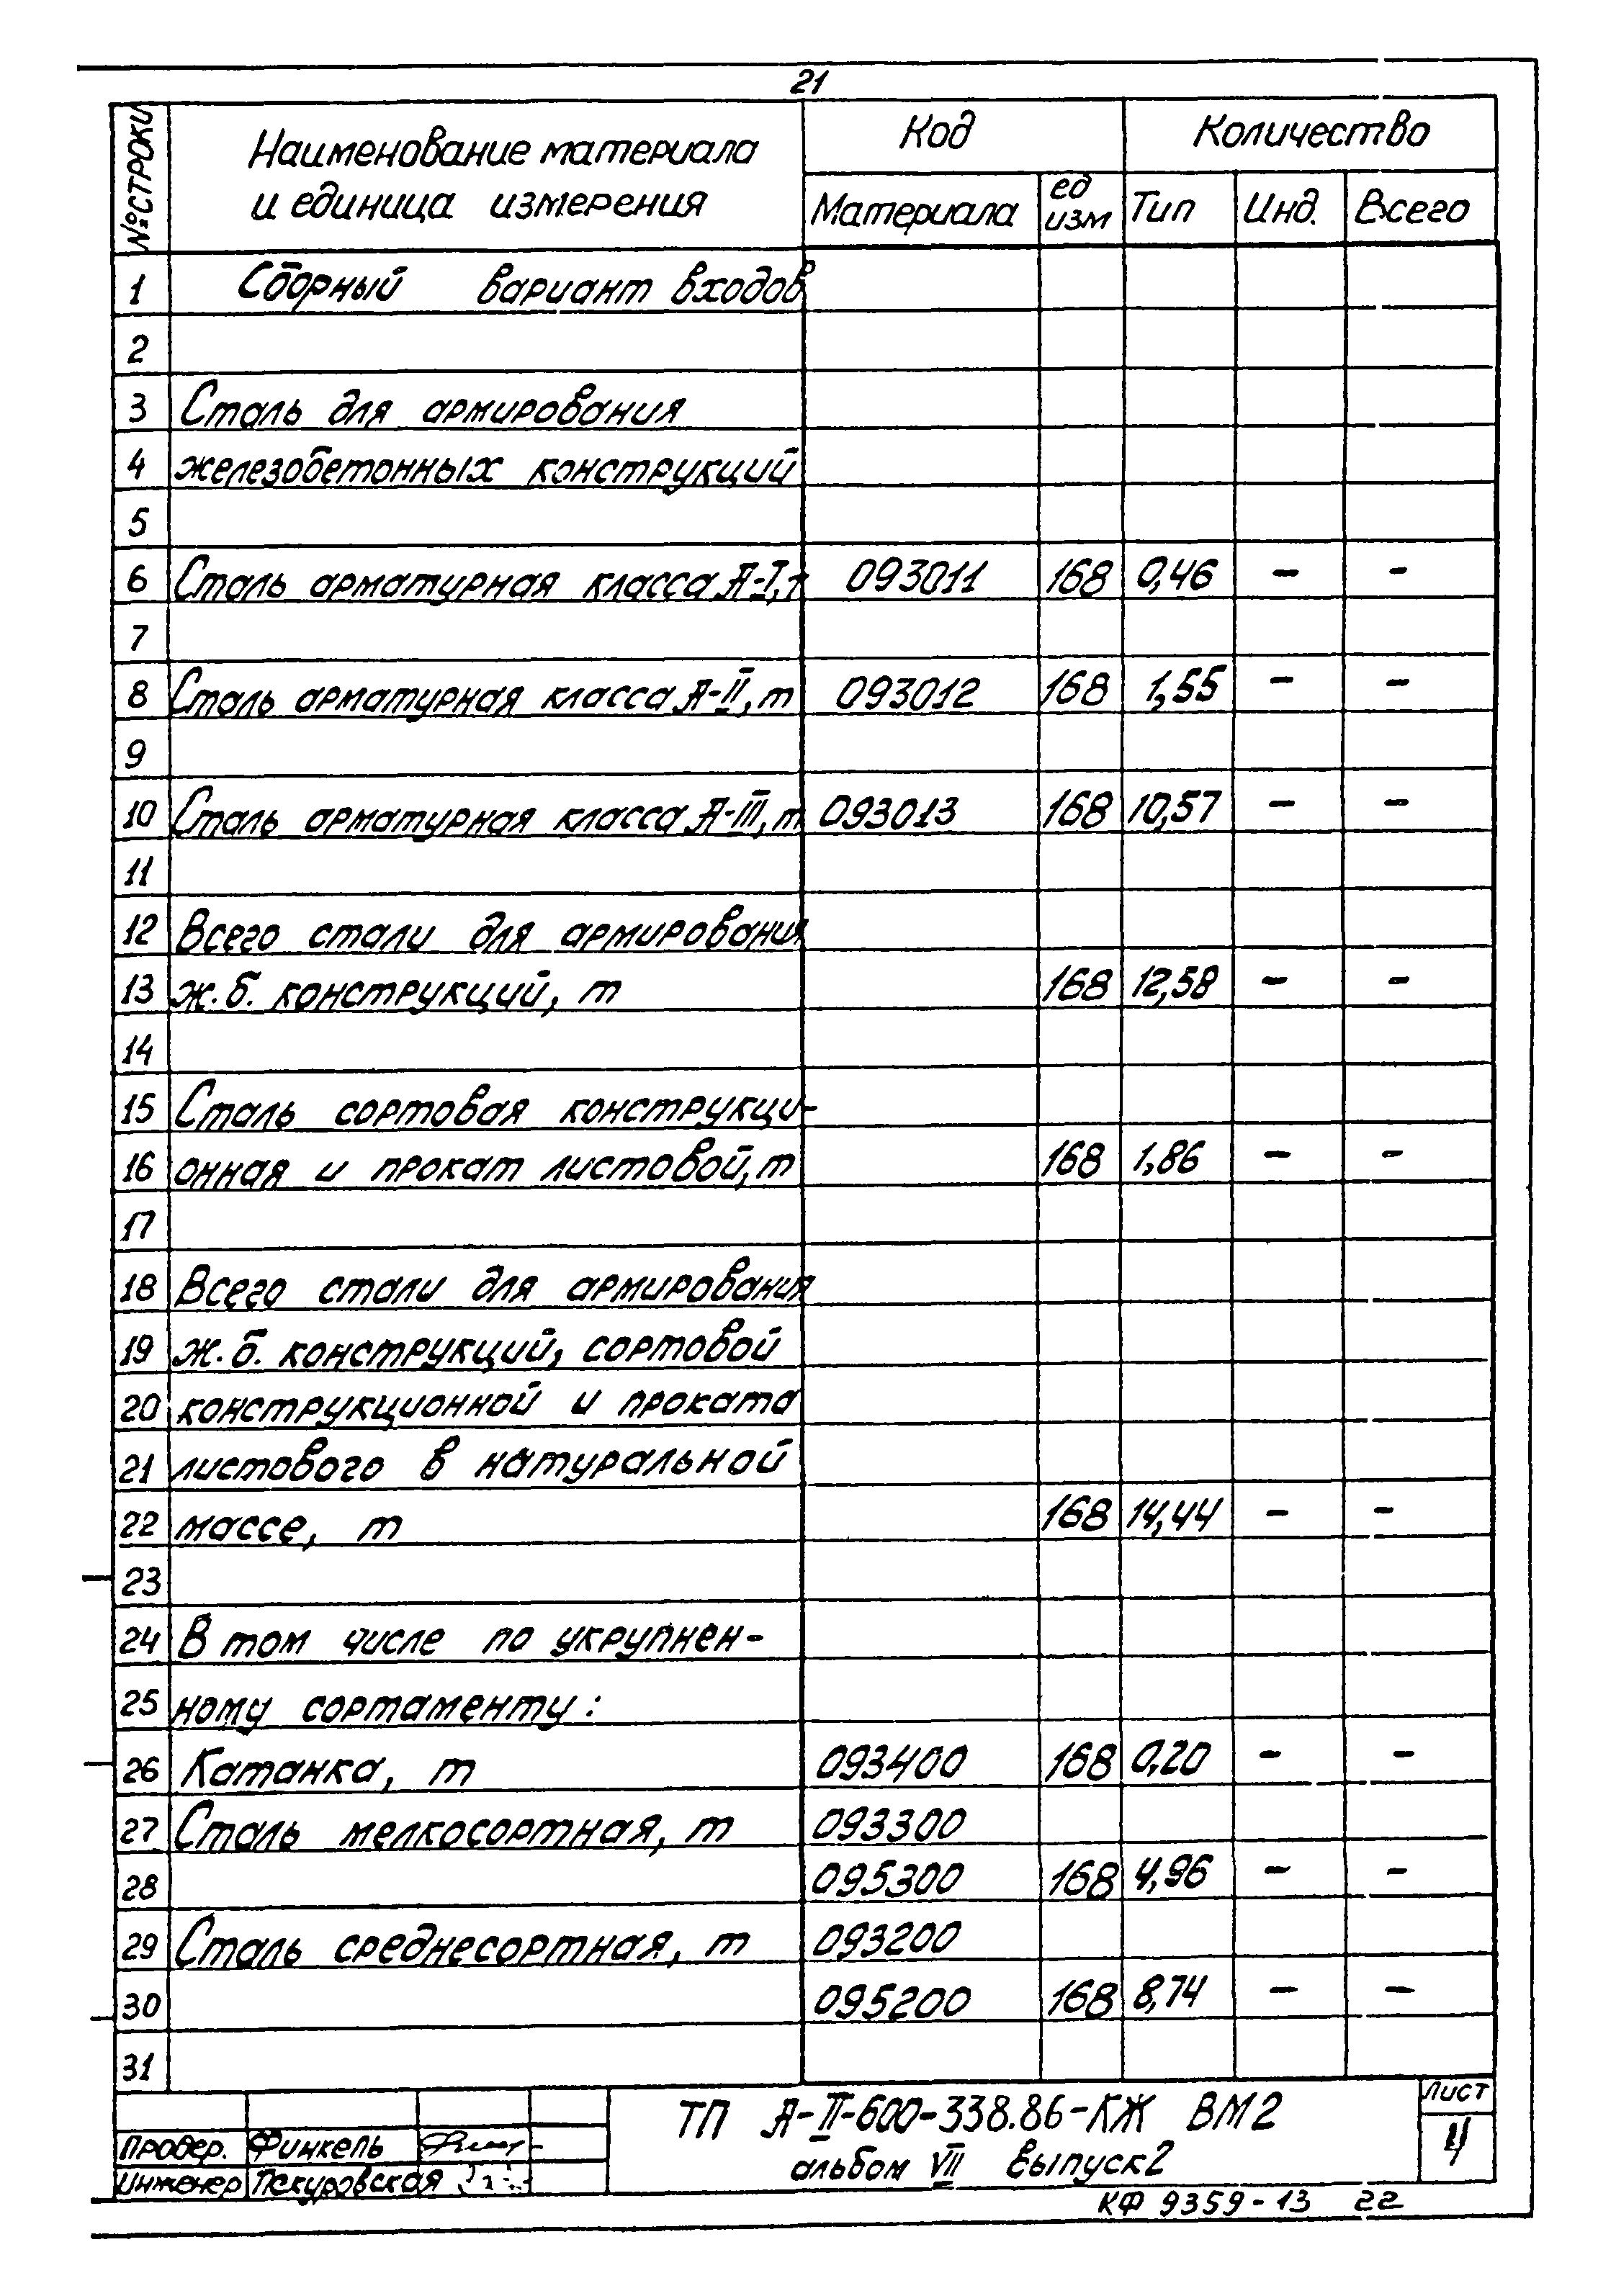 21
№ строки Наименование материала и единица измерения Код Количество
Материала ед изм Тип Инд. Всего
1 Сборный вариант входов
2
3 Сталь для армирования
4 железобетонных конструкций
5
6 Сталь арматурная класса А-I, т 093011 168 0,46 - -
7
8 Сталь арматурная класса А-II, т 093012 168 1,55 - -
9
10 Сталь арматурная класса А-III, т 093013 168 10,57 - -
11
12 Всего стали для армирования
13 ж.б. конструкций, т 168 12,58 - -
14
15 Сталь сортовая конструкци-
16 онная и прокат листовой, т 168 1,86 - -
17
18 Всего стали для армирования
19 ж.б. конструкций, сортовой
20 конструкционной и проката
21 листового в натуральной
22 массе, т 168 14,44 - -
23
24 В том числе по укрупнен-
25 ному сортаменту:
26 Катанка, т 093400 168 0,20 - -
27 Сталь мелкосортная, т 093300
28 095300 168 4,96 - -
29 Сталь среднесортная, т 093200
30 095200 168 8,74 - -
31
ТП А-II-600-338.86-КЖ ВМ2 Лист
Провер. Финкель альбом VII Выпуск 2 4
Инженер Пекуровская
КФ 9359-13 22